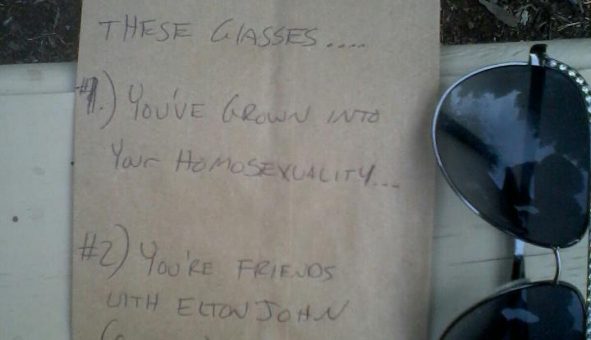 THESE GLASSES....
#1.) YOU'VE GROWN INTO
YOUR HOMOSEXUALITY...
#2) YOU'RE FRIENDS
WITH ELTON JOHN